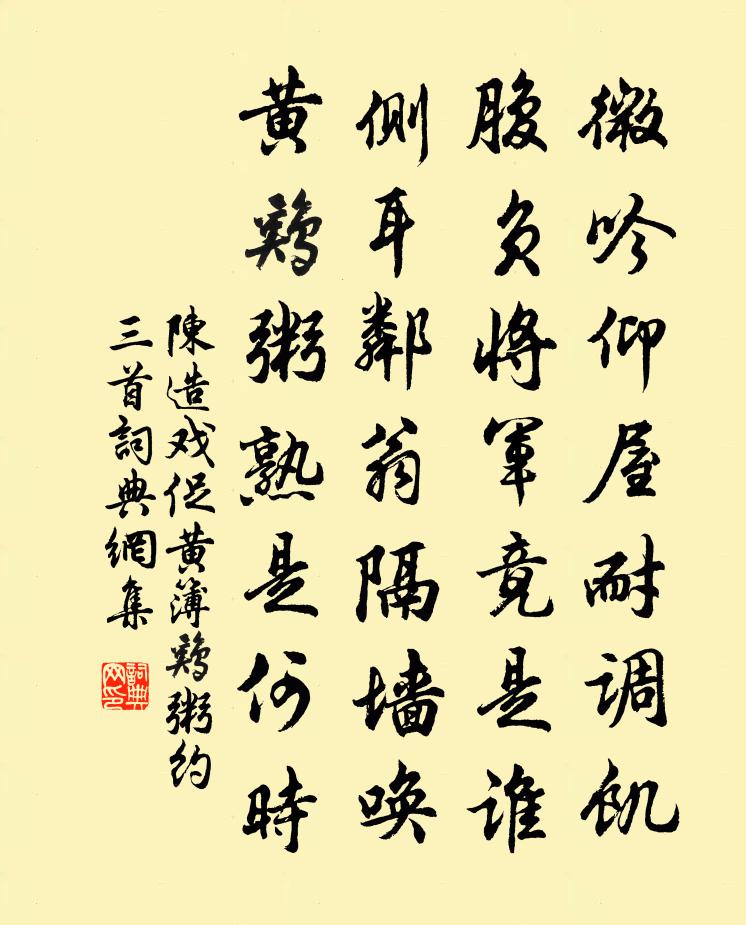 微吟仰屋耐调飢
腹负将军竟是谁
侧耳鄰翁隔墙唤
黄鷄粥熟是何時
陳造戏促黄簿鷄粥约
三首詞典網集
詞典网印